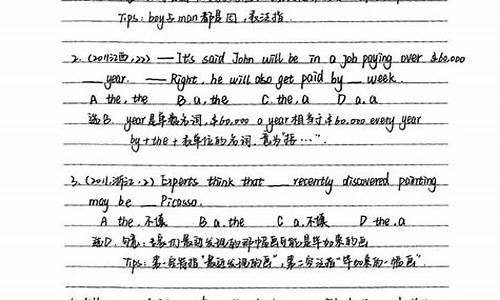 Tips: boy与man都是因,表泛指.
2. (2011江西,22) — It's said John will be in a job paying over $60,000
___ year. — Right, he will also get paid by ___ week.
A the, the B. a, the C. the, a D a, a
选B. year是单数名词, $60,000 a year 相当于$60,000 every year
by+the+表单位的名词,意为"按…".
3. (2011.浙江,2) Experts think that ___ recently discovered painting
may be ___ Picasso.
A the, 不填 B a, the C a, 不填 D the, a
选D. 句意:专家们最近发现的那幅画可能是毕加索的画
Tips: 第一空特指"最近发现的画", 第二空泛指"毕加索的一幅画".